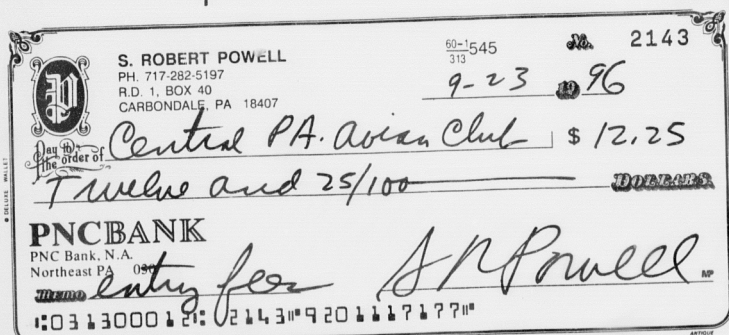 S. ROBERT POWELL
PH. 717-282-5197
R.D. 1, BOX 40
CARBONDALE, PA 18407
60-1545
313
No. 2143
9-23 19 96
Pay to the order of Central PA. Avian Club $ 12.25
Twelve and 25/100 DOLLARS
PNCBANK
PNC Bank, N.A.
Northeast PA 090
MEMO entry fees S R Powell MP
⑆031300012⑆ 2143⑈9201117177⑈
DELUXE WALLET
ANTIQUE